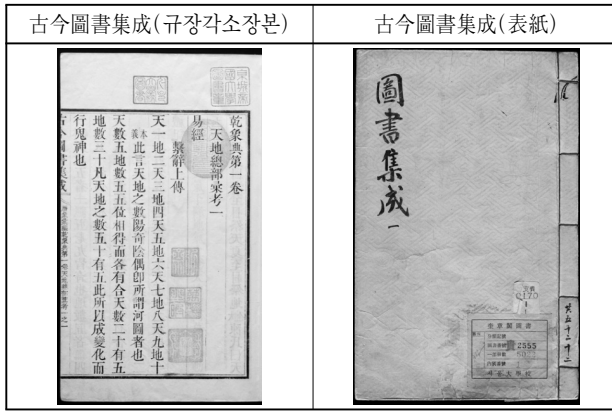 古今圖書集成(규장각소장본)
古今圖書集成(表紙)
乾象典第一卷
天地總部彙考一
易經
繫辭上傳
天一地二天三地四天五地六天七地八天九地十
本義 此言天地之數陽奇陰偶卽所謂河圖者也
天數五地數五五位相得而各有合天數二十有五
地數三十凡天地之數五十有五此所以成變化而
行鬼神也
古今圖書集成
圖書集成 一
奎章閣圖書
2555